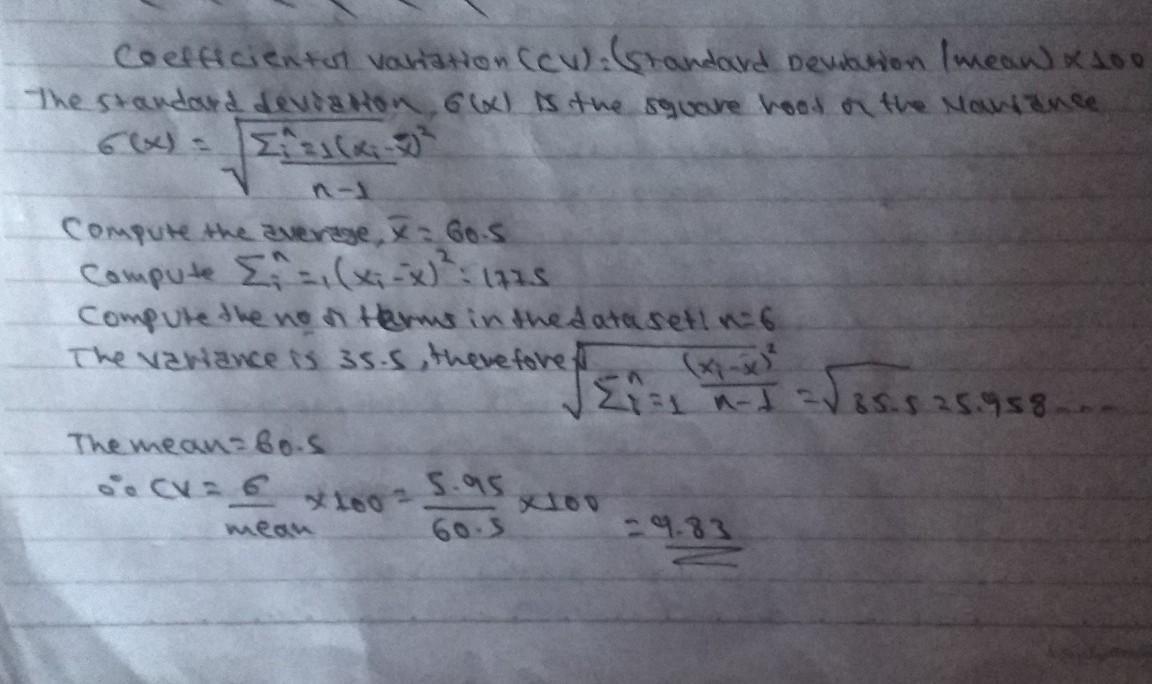 Coefficient of variation (CV) = (Standard Deviation / mean) × 100
The standard deviation, σ(x) is the square root of the variance
σ(x) = √ Σⁿᵢ=1(xᵢ-x̄)² / n-1
Compute the average, x̄ = 60.5
Compute Σⁿᵢ=1(xᵢ-x̄)² = 177.5
Compute the no of terms in the dataset! n=6
The variance is 35.5, therefore √ Σⁿᵢ=1 (xᵢ-x̄)² / n-1 = √35.5 = 5.958....
The mean = 60.5
∴ CV = σ / mean × 100 = 5.95 / 60.5 × 100 = 9.83